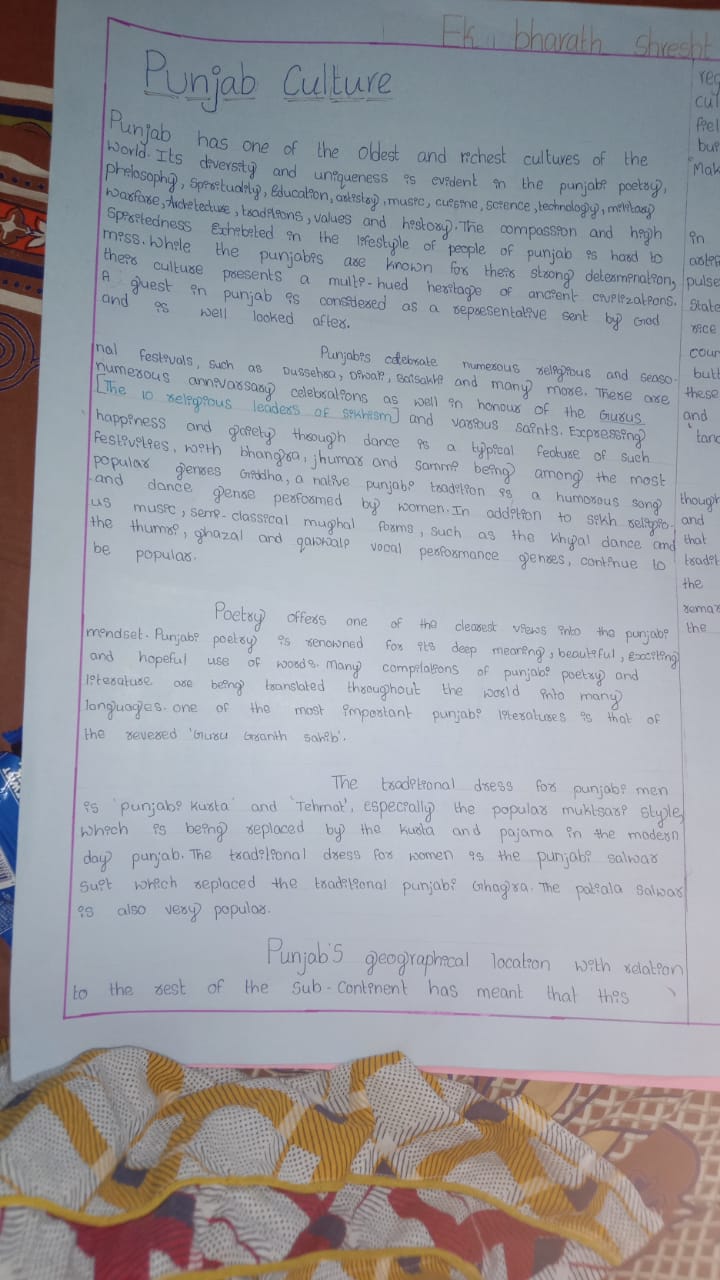 Ek bharath shresht
Punjab Culture
Punjab has one of the oldest and richest cultures of the
world. Its diversity and uniqueness is evident in the punjabi poetry,
philosophy, spirituality, Education, artistry, music, cuisine, science, technology, military
warfare, Architecture, traditions, values and history. The compassion and high
spiritedness Exhibited in the lifestyle of people of punjab is hard to
miss. While the punjabis are known for their strong determination,
their culture presents a multi-hued heritage of ancient civilizations.
A guest in punjab is considered as a representative sent by God
and is well looked after.
Punjabis celebrate numerous religious and seaso-
nal festivals, such as Dussehra, Diwali, Baisakhi and many more. There are
numerous annivarsary celebrations as well in honour of the Gurus
[The 10 religious leaders of sikhism] and various saints. Expressing
happiness and gaiety through dance is a typical feature of such
festivities, with bhangra, jhumar and sammi being among the most
popular genres Giddha, a native punjabi tradition is a humorous song
and dance genre performed by women. In addition to sikh religio-
us music, semi-classical mughal forms, such as the khyal dance and
the thumri, ghazal and qawwali vocal performance genres, continue to
be popular.
Poetry offers one of the clearest views into the punjabi
mindset. Punjabi poetry is renowned for its deep meaning, beautiful, exciting
and hopeful use of words. many compilations of punjabi poetry and
literature are being translated throughout the world into many
languages. one of the most important punjabi literatures is that of
the revered 'Guru Granth sahib'.
The traditional dress for punjabi men
is 'punjabi kurta' and 'Tehmat', especially the popular muktsari style,
which is being replaced by the kurta and pajama in the modern
day punjab. The traditional dress for women is the punjabi salwar
suit which replaced the traditional punjabi Ghagra. The patiala salwar
is also very popular.
Punjab's geographical location with relation
to the rest of the sub-continent has meant that this
reg
cul
feel
but
Mak
in
pulse
state
rice
cour
butt
these
and
tand
though
and
that
tradit
the
remar
the